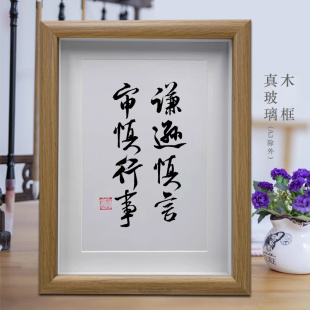 谦逊慎言
审慎行事
木框
真玻璃
(A3除外)